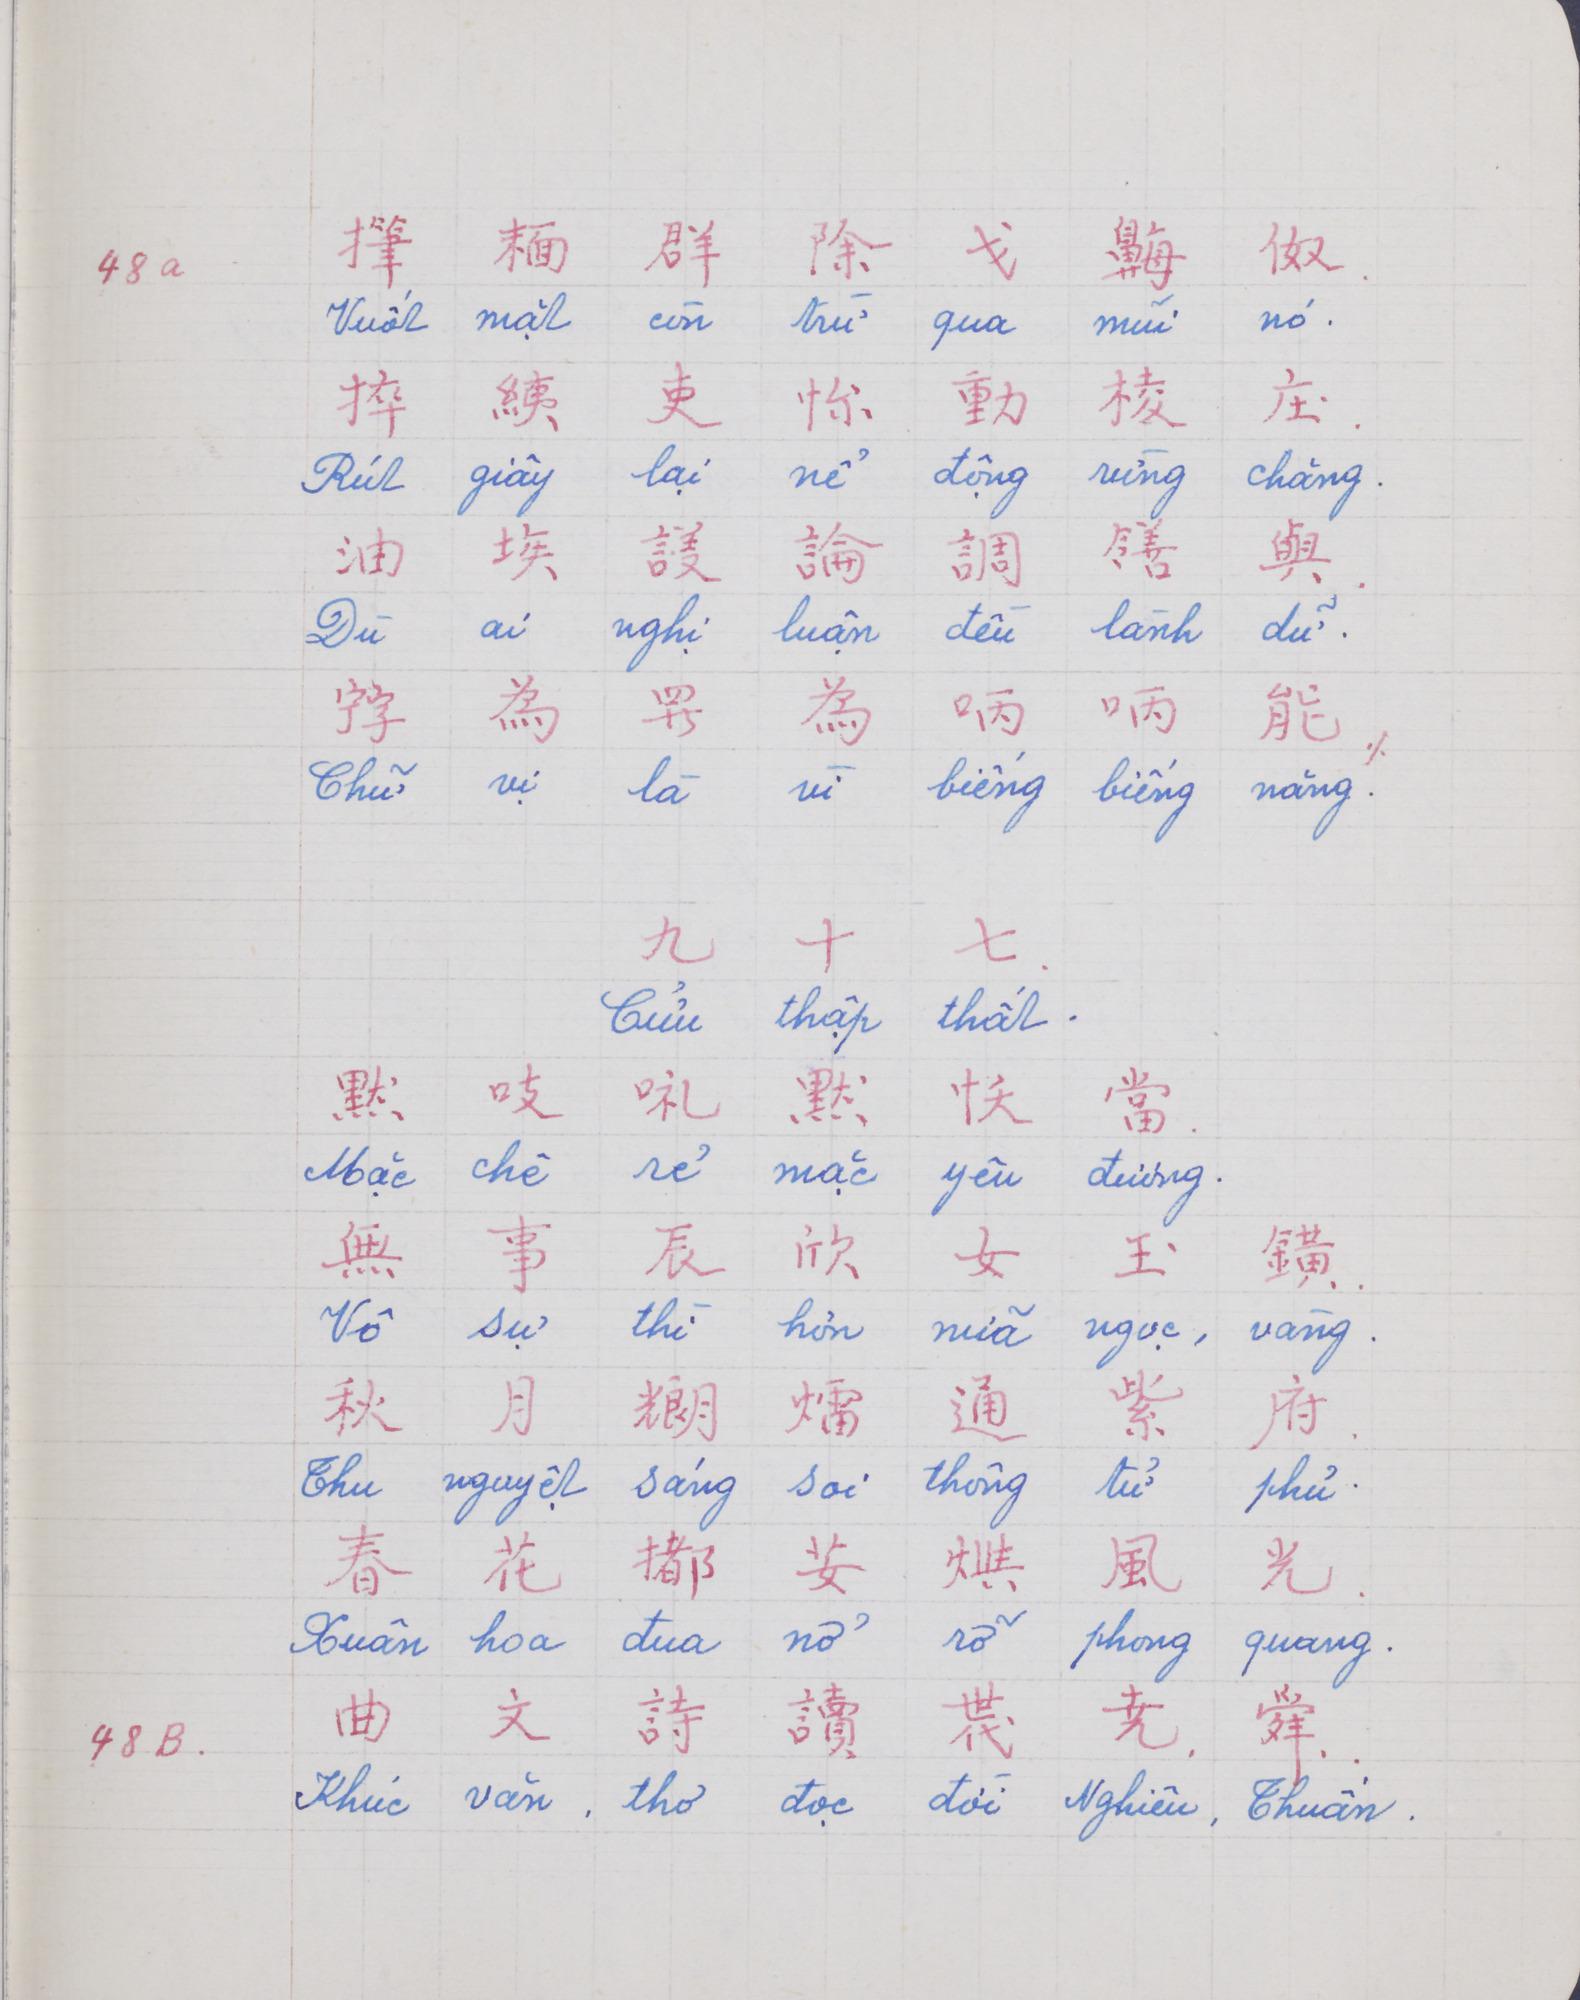 48a
撶 𩈘 群 除 戈 𪖫 伮.
Vuốt mặt còn trừ qua mũi nó.
捽 𦀊 吏 㤅 動 棱 庄.
Rút giây lại nể động rừng chăng.
油 埃 議 論 調 饍 與.
Dù ai nghị luận đều lành dữ.
𡨸 為 𱺵 為 哂 哂 能./.
Chữ vị là vì biếng biếng năng.
九 十 七.
Cửu thập thất.
默 吱 𠱈 默 㤇 當.
Mặc chê rẻ mặc yêu đương.
無 事 辰 欣 女 玉 鐄.
Vô sự thì hơn nữa ngọc, vàng.
秋 月 𤎜 㷟 通 紫 府.
Thu nguyệt sáng soi thông tử phủ.
春 花 都 芰 燶 風 光.
Xuân hoa đua nở rỡ phong quang.
48B.
曲 文 詩 讀 𠁀 尭, 舜.
Khúc văn, thơ đọc đời Nghiêu, Thuấn.